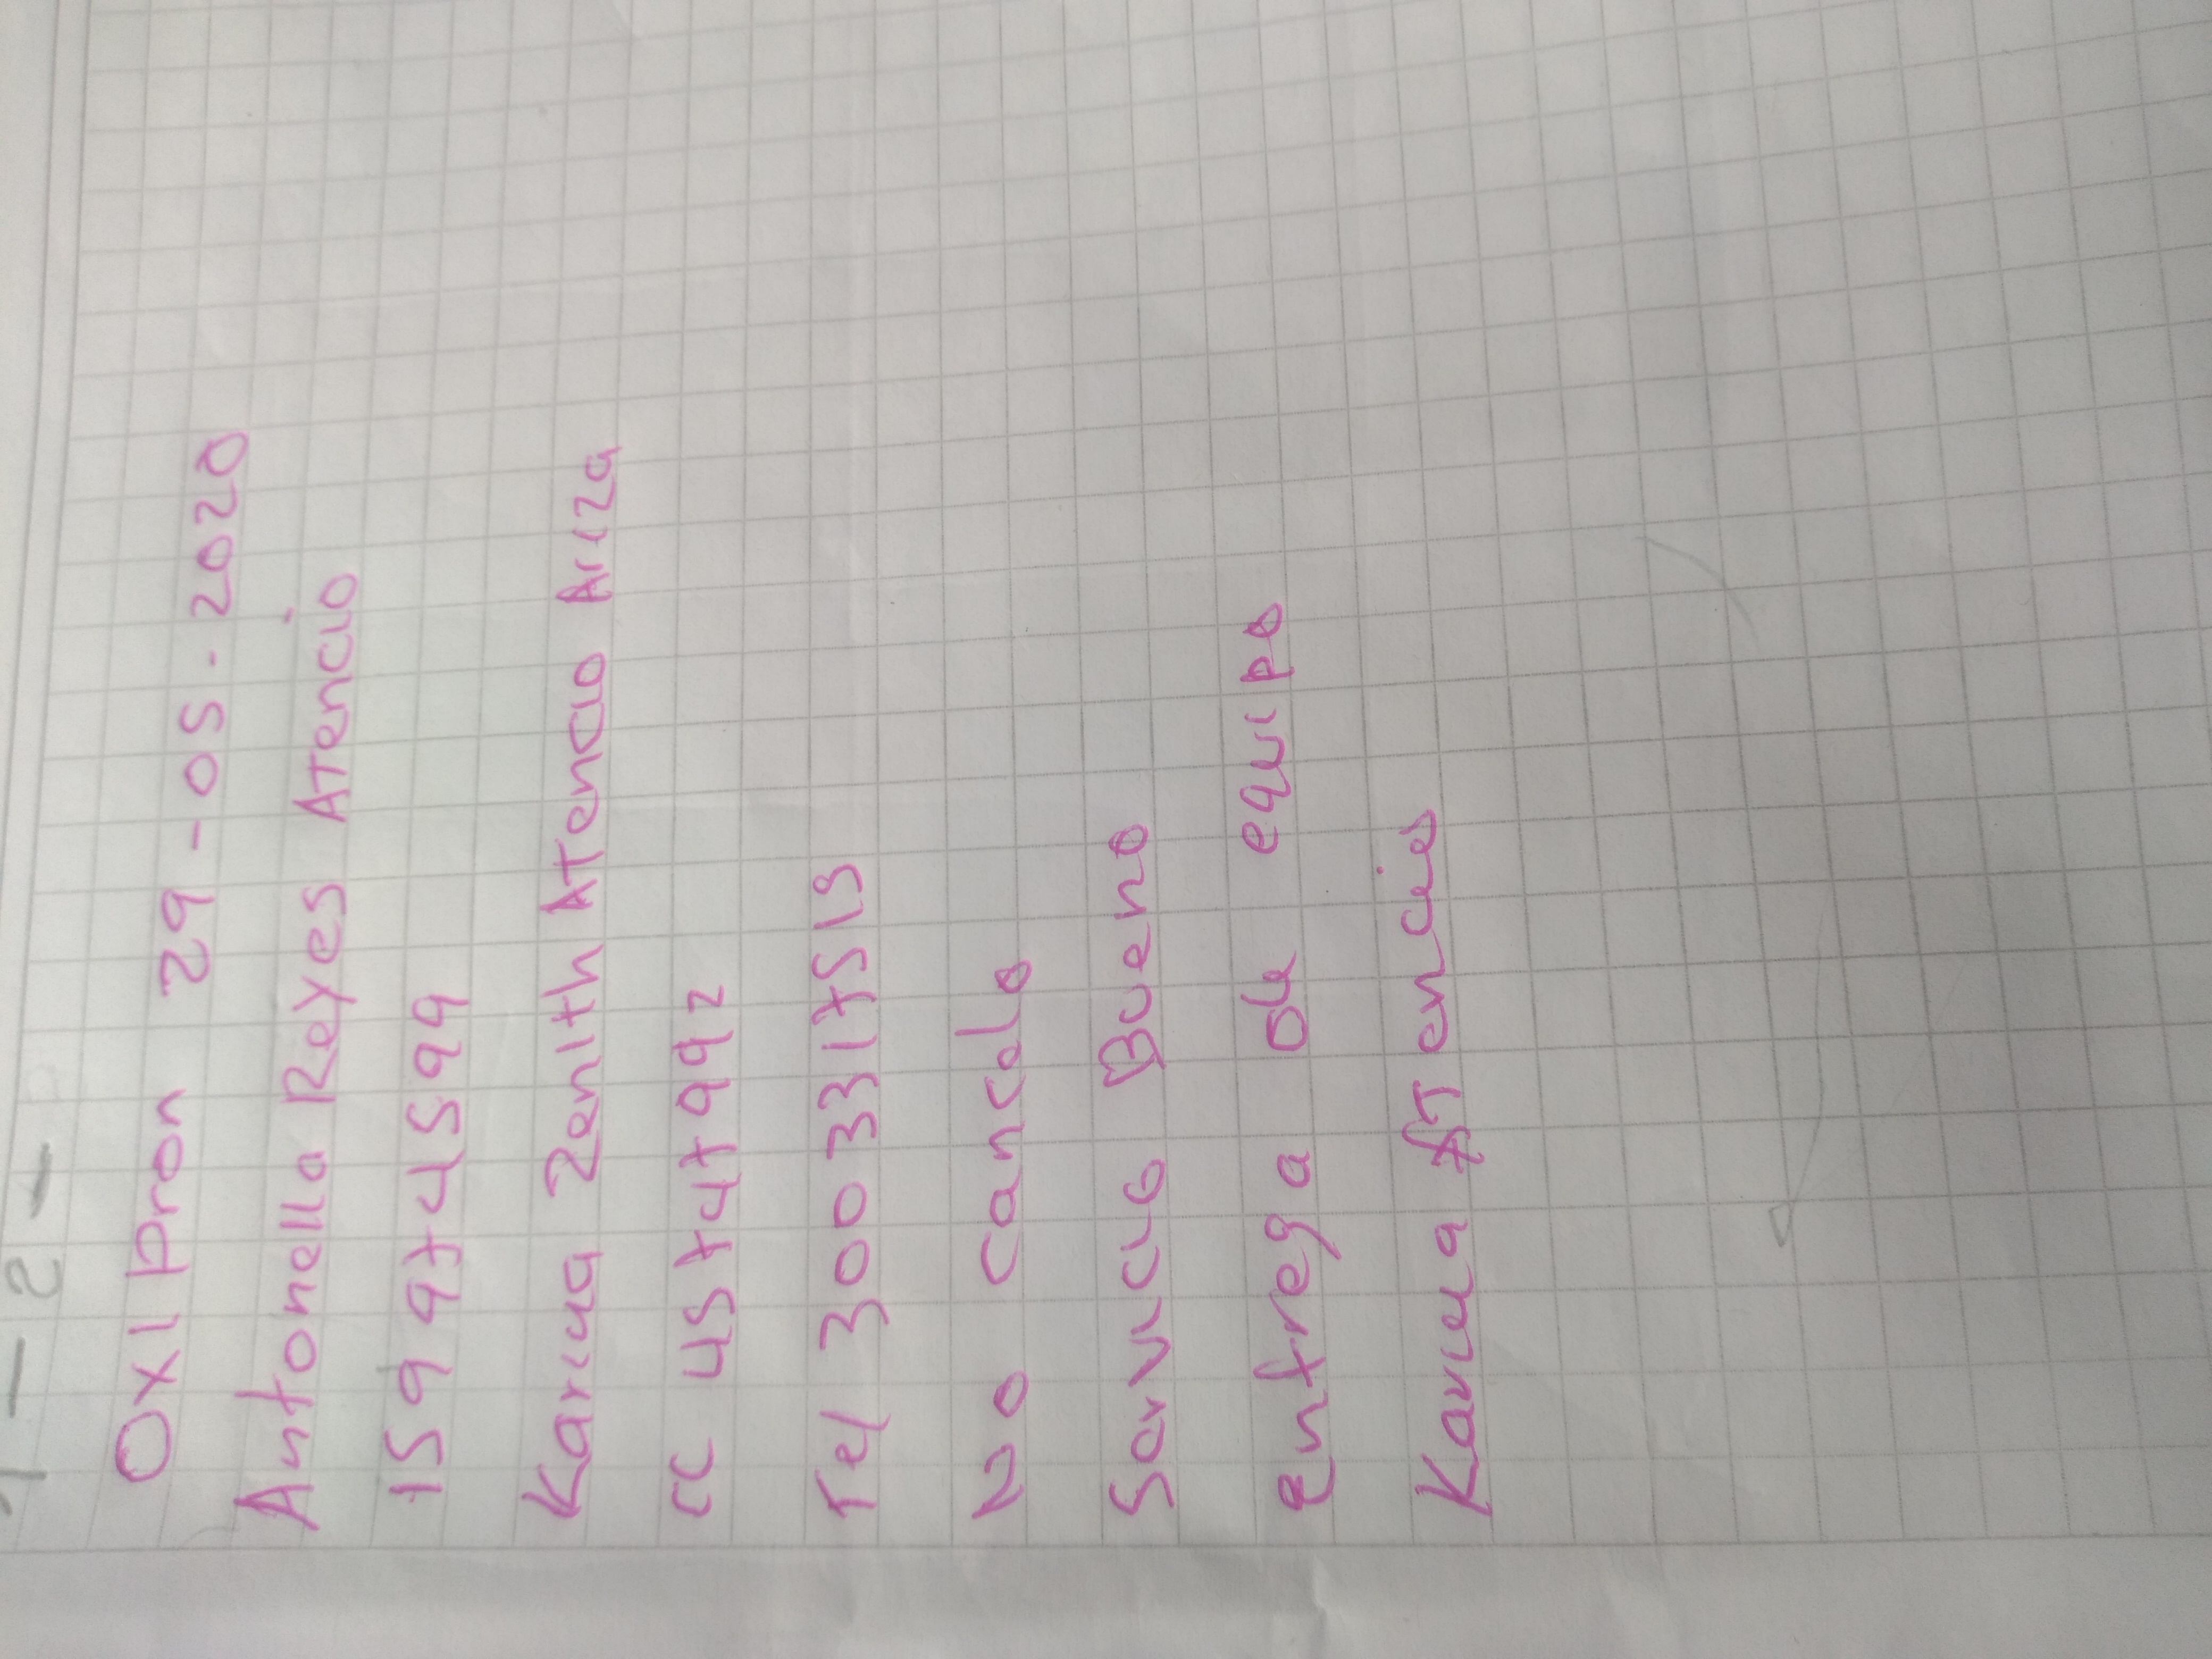 1-2-
Oxipron 29-05-2020
Antonella Reyes Atencio
159974599
Karina Zenith Atencio Ariza
CC 45747992
Tel 3003317515
No cancelo
Servicio Bueno
entrega de equipo
Karina Atencio